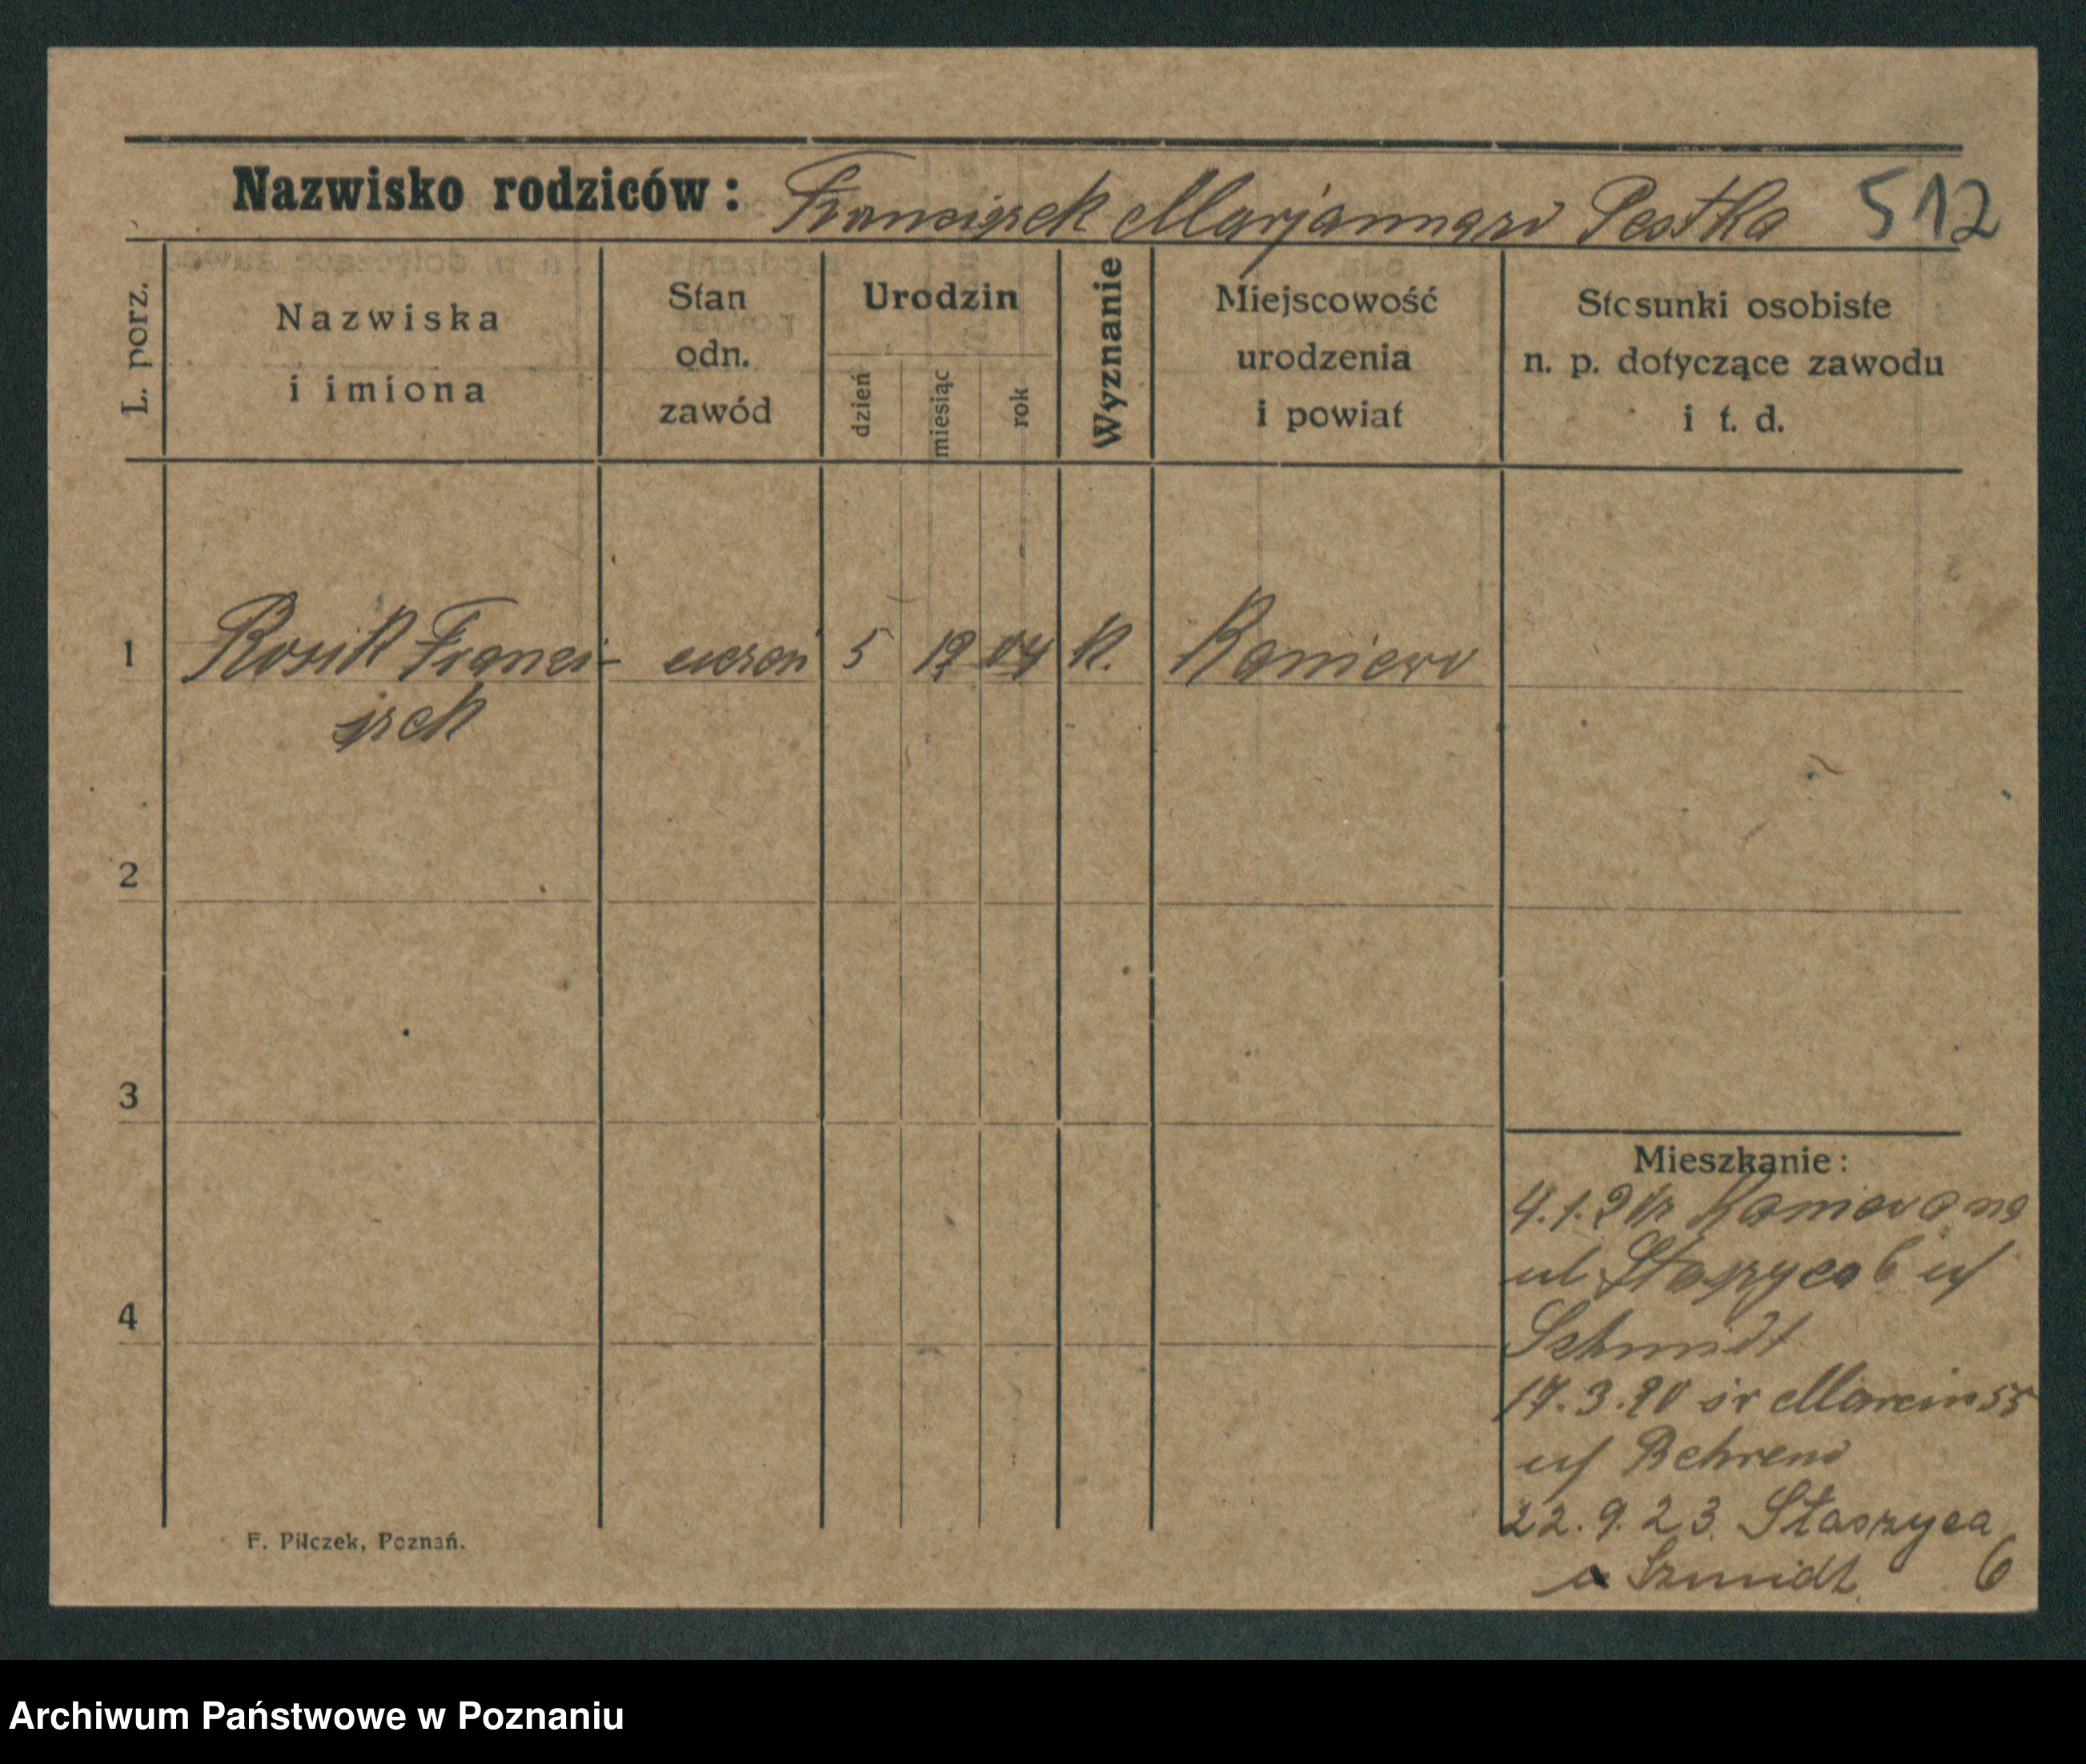 Nazwisko rodziców: Franciszek Marjanna zd Pestka 512
L. porz.
Nazwiska
i imiona
Stan
odn.
zawód
Urodzin
dzień
miesiąc
rok
Wyznanie
Miejscowość
urodzenia
i powiat
Stosunki osobiste
n. p. dotyczące zawodu
i t. d.
1 Rosik Franci- uczeń 5 12 04 K. Kaniewo
szek
2
3
4
Mieszkanie:
4.1. z Kaniewa na
ul Staszyca 6 u/
Schmidt
17.3.20 św Marcin 55
u/ Behrend
22.9.23. Staszyca
u Szmidt 6
F. Pilczek, Poznań.
Archiwum Państwowe w Poznaniu